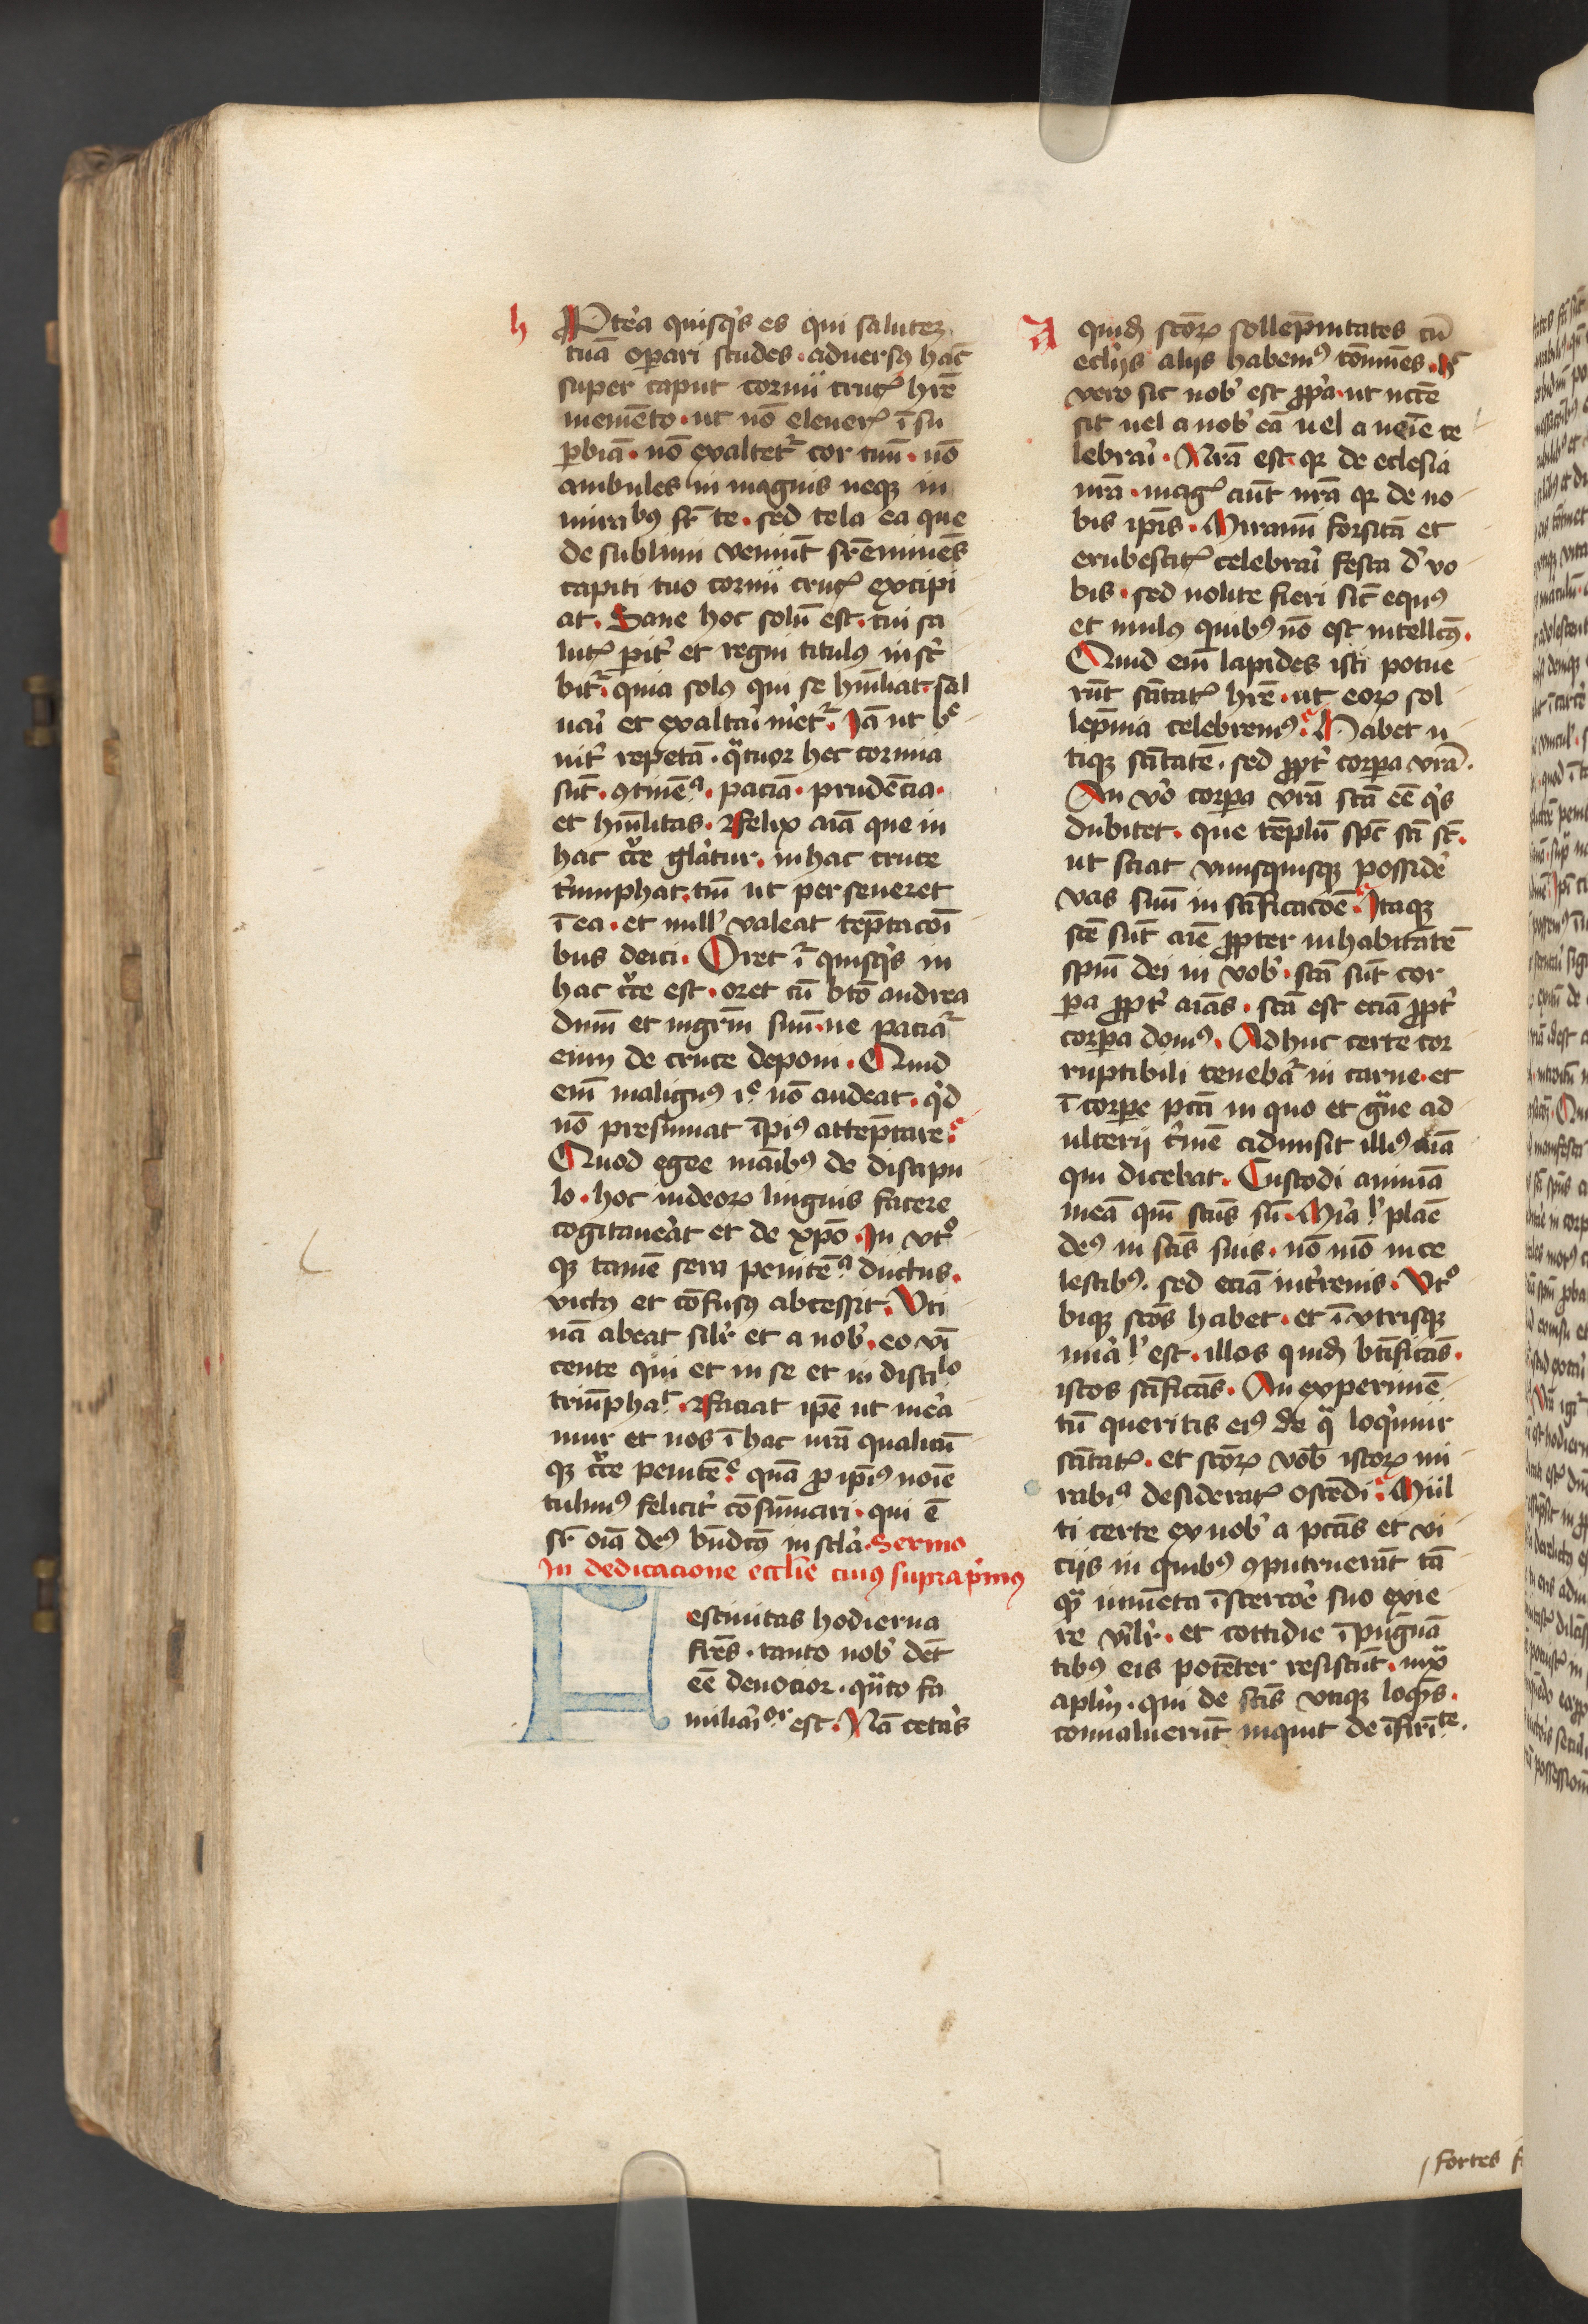 h
Pret'ea quisq's es qui salutez
tuā op̄ari studes . aduersꝰ hāc
super caput cornu cruc̉ hr̄e
memēto . ut nō eleuer̉ ī su
ꝑbiā . nō exaltet᷑ cor tuū . nō
ambules in magnis neqꝫ in
mirabilibꝰ sr̄ te . sed tela ea que
de sublimi veniūt sr̄eminēs
capiti tuo cornu cruc̉ excipi
at . Sane hoc solū est . tui sa
lut̉ ꝑit' et regni titulus inscͥ
bit᷑ . quia solꝰ qui se hūiliat . sal
uaͥ et exaltaͥ m'et᷑ . Jā ut bͤ
uit' repetā . qͣtuor hec cornua
sūt . ꝯtinēᵃ . paciā . prudēcia .
et hūilitas . Felix aīa que in
hac cͬce gl'atur . in hac cruce
tͥumphat . tm̄ ut perseueret
ī ea . et null' valeat tēptacoī
bus deici . Oret ī᷑ quisq's in
hac cͬce est . oret cū btō andrea
dn̄m et mgr̄m suū . ne paciaᷓ
eum de cruce deponi . Quid
em̄ malignꝰ iˢ nō audeat . qͥd
nō presumat īpiꝰ attēptare
Quod egee maībꝰ de discipu
lo . hoc iudeoꝝ linguis facere
cogitauerat et de xp̄o . In vtͦ
qꝫ tamē sera penitēᵃ ductus .
victꝰ et cōfusꝰ abcessit . Vti
nā abeat sil'r et a nob' . eo vī
cente qui et in se et in disciˡᵒ
triūphaᵗ . Faciat ip̄e ut mer'a
mur et nos ī hac nr̄a qualicū
qꝫ cͬce penitēᵉ quā ꝓ ip̄iꝰ noīe
tulimꝰ felicit' cōsūmari . qui ē
sr̄ oīa deꝰ bn̄dcꝰ in scl'a . Sermo
In dedicacione eccl'ie cuiꝰ supra pͥmꝰ
Festiuitas hodierna
fr̄es . tanto nob' det
eē deuocior . qͣto fa
miliaͥᵒʳ est . Nā cetaͥs
A quid' scōꝝ sollēpnitates cū
ecl'iis aliis habemꝰ cōmunes . hͨ
vero sic nob' est ꝓp̄a . ut nec̄e
sit uel a nob' eā uel a neīe ce
lebraͥ . Nr̄a est . qꝛ de eclesia
nr̄a . mag̉ aūt nr̄a qꝛ de no
bis ip̄is . Miramī forsitā et
erubescit̉ celebraͥ festa d' vo
bis . sed nolite fieri sic̄ equꝰ
et mulꝰ quibꝰ nō est intellcꝰ .
Quid em̄ lapides isti potue
rūt sc̄itat̉ hr̄e . ut eoꝝ sol
lēpnia celebremꝰ . Habet u
tiqꝫ sc̄itatē . sed ꝓpt' corpa vr̄a .
An v'o corpa vr̄a scā eē q's
dubitet . que tēplū spc̄ scī st̄ .
ut sciat vnusquisqꝫ possid'e
vas suū in sc̄ificacōe . Itaqꝫ
scē sūt aīe ꝓpter inhabitātē
spm̄ dei in vob' . scā sūt cor
pa ꝓpt' aīas . scā est eciā ꝓpt'
corpa domꝰ . Adhuc certe cor
ruptibili tenebāᷓ in carne . et
ī corpe pctī in quo et gͣue ad
ulterii cͥmē admisit illiꝰ aīa
qui dicebat . Custodi animā
meā qm̄ scūs sū . Mir'a l'r planē
deꝰ in scīs suis . nō mō in ce
lestibꝰ . sed eciā in t'renis . Vtͦ
biqꝫ scōs habet . et ī vtrisqꝫ
mir'a l'r est . illos quid' btīficās .
istos sc̄ificās . An experimē
tū queritis eiꝰ de qᷓ loq'mur
sc̄itat̉ . et scōꝝ vob' istoꝝ mi
rabiᵃ desiderat̉ ostēdi . Mul
ti certe ex uob' a pctīs et vi
ciis in quibꝰ ꝯputruerūt tā
qͣ iumēta ī stercor'e suo exie
re vil'r . et cottidie īpugnā
tibꝰ eis potēter resistūt . iuxͣ
aplm̄ . qui de scīs vtiqꝫ loq̄ns .
conualuerūt inquit de īfirīᵗᵉ .
fortes